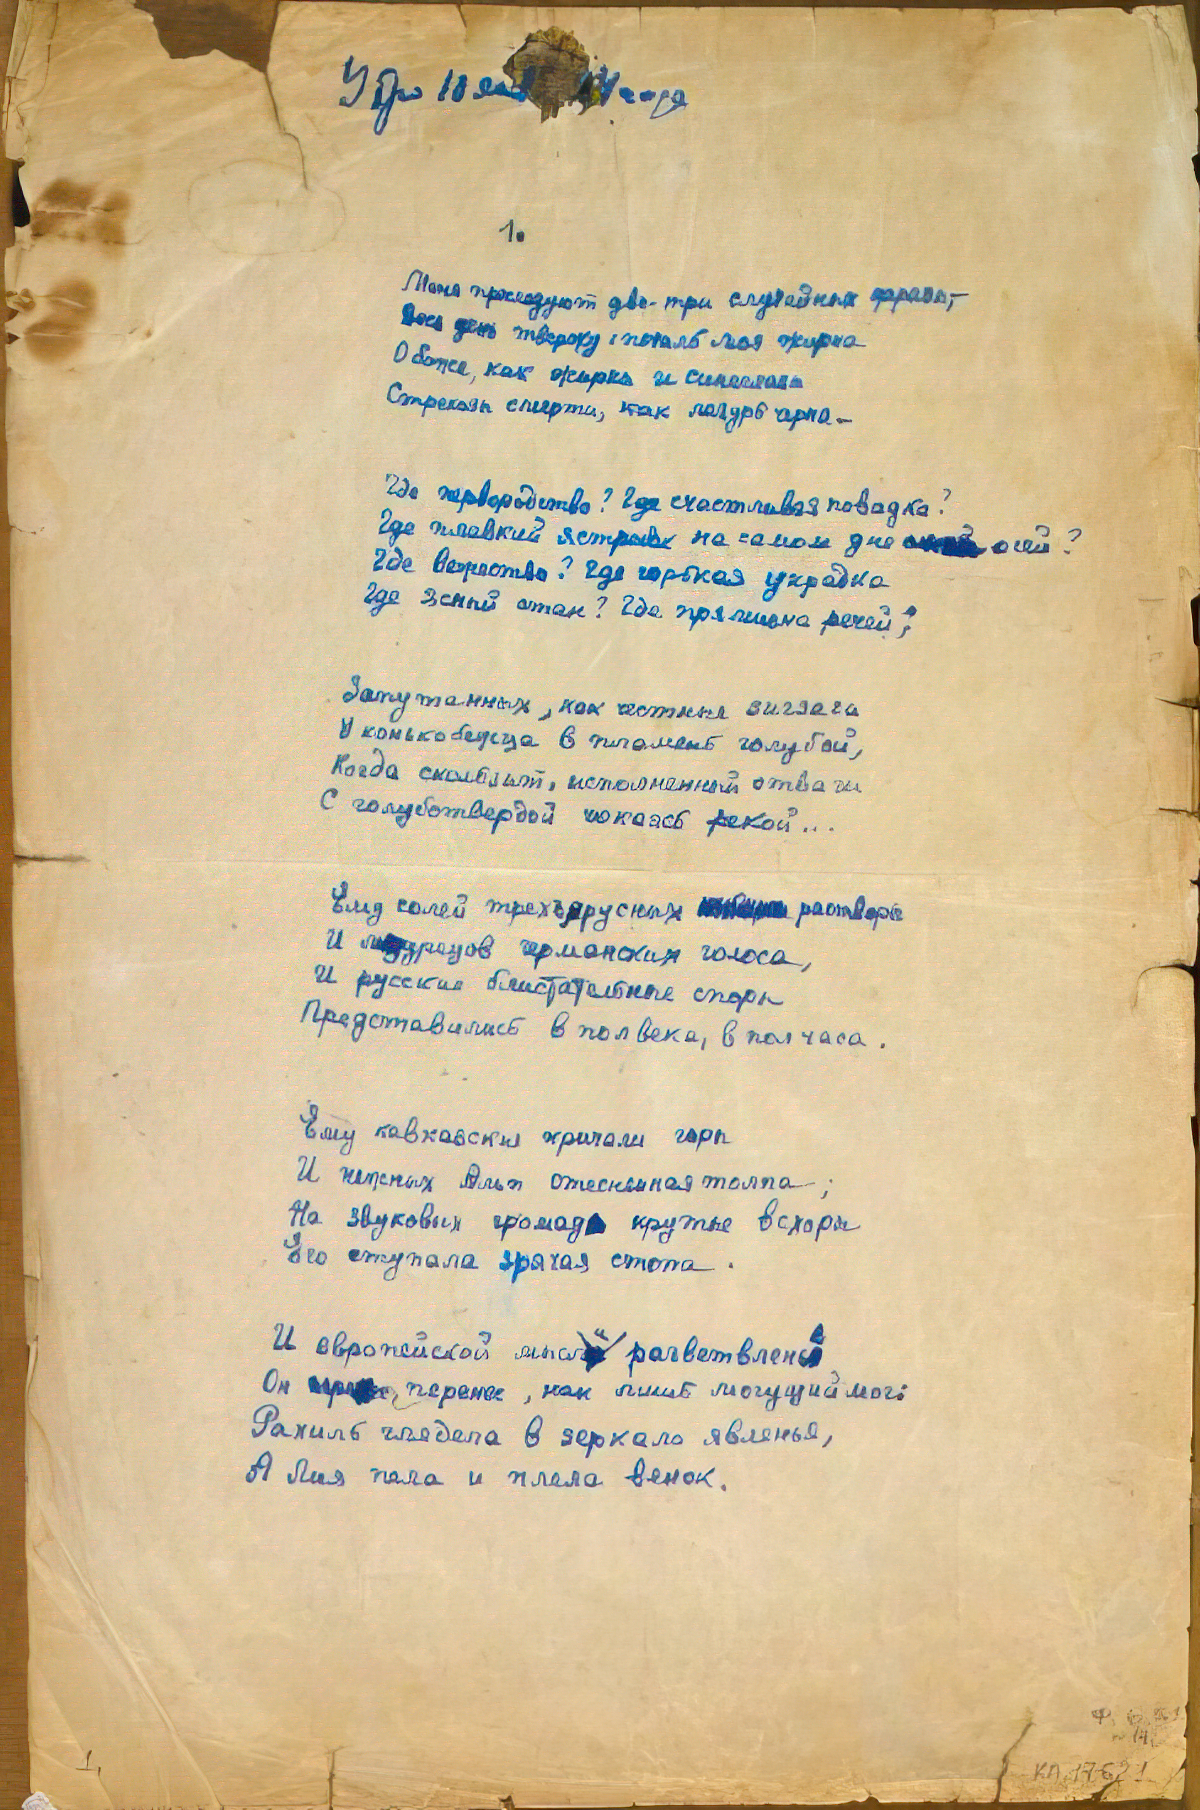 Утро 10 янв 34 года
1.
Меня преследуют две-три случайных фразы,—
Весь день твержу: печаль моя жирна
О боже, как жирны и синеглазы
Стрекозы смерти, как лазурь черна —
Где первородство? Где счастливая повадка?
Где плавкий ястребок на самом дне очей?
Где вежество? Где горькая украдка
Где ясный стан? Где прямизна речей,
Запутанных, как честные зигзаги
У конькобежца в пламень голубой,
Когда скользит, исполненный отваги
С голуботвердой чокаясь рекой...
Ему солей трехъярусных растворы
И мудрецов германских голоса,
И русские блистательные споры
Представились в полвека, в полчаса.
Ему кавказские кричали горы
И нежных Альп стесненная толпа;
На звуковых громад крутые всхоры
Его ступала зрячая стопа.
И европейской мысли разветвленье
Он перенес, как лишь могущий мог:
Рахиль глядела в зеркало явленья,
А Лия пела и плела венок.
1.
КП 17621